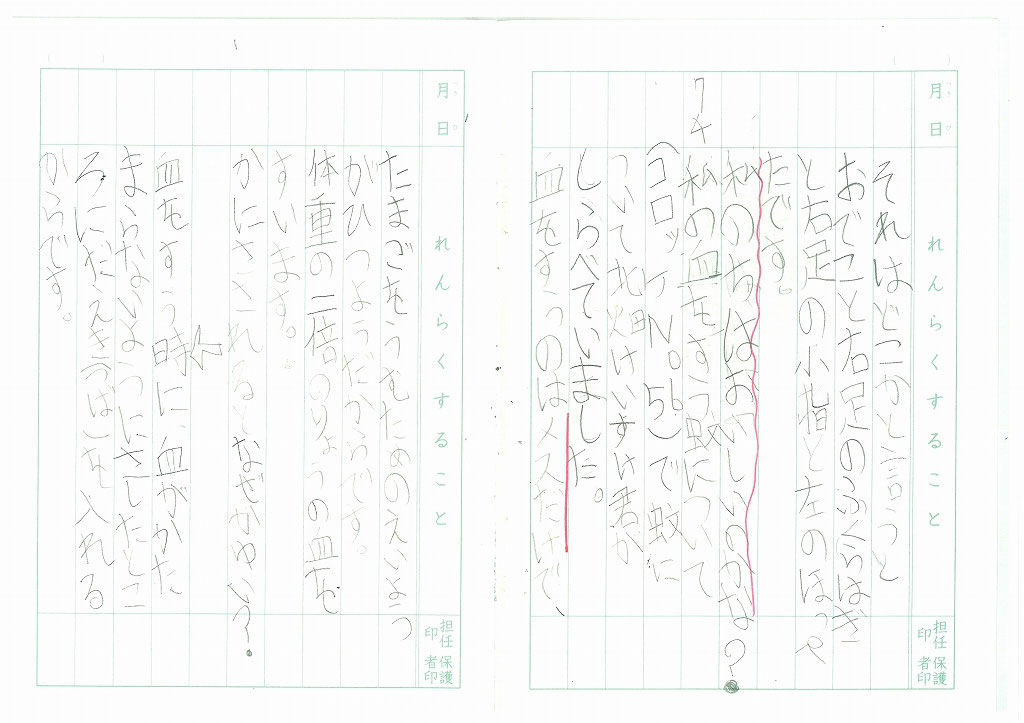 月 日
れんらくすること
担任印
保護者印
それはどこかと言うと
おでこと右足のふくらはぎ
と右足の小指と左のほっぺ
たです。
私のちはおいしいのかな？
7/4
私の血をすう蚊について
(コロッケNo.56)で蚊に
ついて北畑けいすけ君が
しらべていました。
血をすうのはメスだけで、
月 日
れんらくすること
担任印
保護者印
たまごをうむためのえいよう
がひつようだからです。
体重の二倍のりょうの血を
すいます。
かにさされるとなぜかゆい？
血をすう時に血がかた
まらないようにさしたとこ
ろにだえきを入れる
からです。